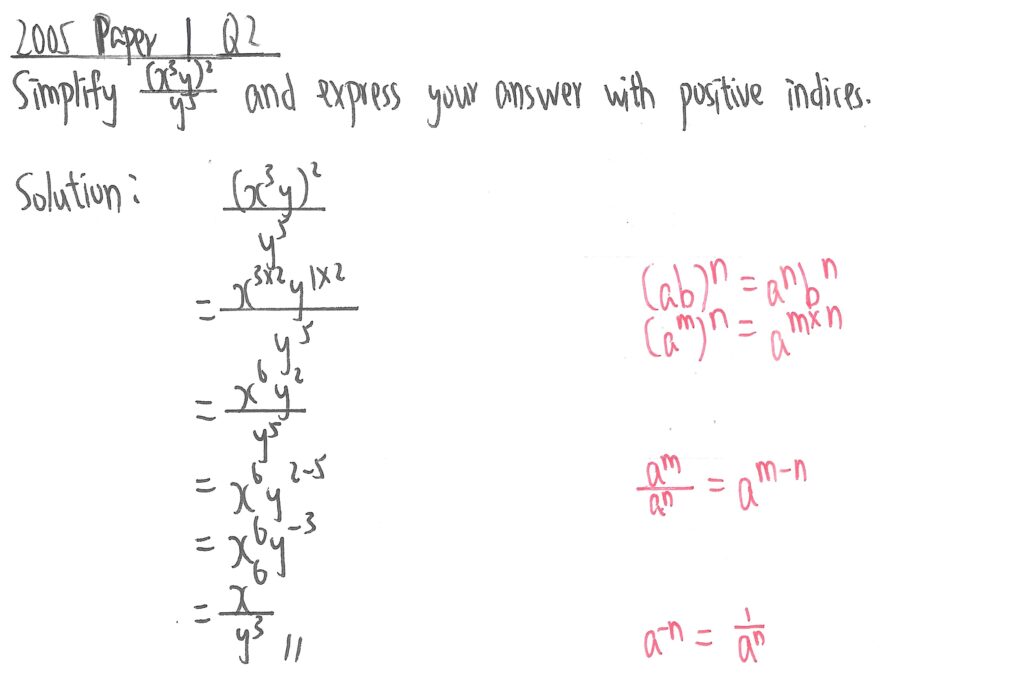 2005 Paper 1 Q2
Simplify (x³y)²/y⁵ and express your answer with positive indices.
Solution: (x³y)²/y⁵
= x³ˣ²y¹ˣ²/y⁵
(ab)ⁿ = aⁿbⁿ
(aᵐ)ⁿ = aᵐˣⁿ
= x⁶y²/y⁵
= x⁶y²⁻⁵
aᵐ/aⁿ = aᵐ⁻ⁿ
= x⁶y⁻³
= x⁶/y³ //
a⁻ⁿ = 1/aⁿ